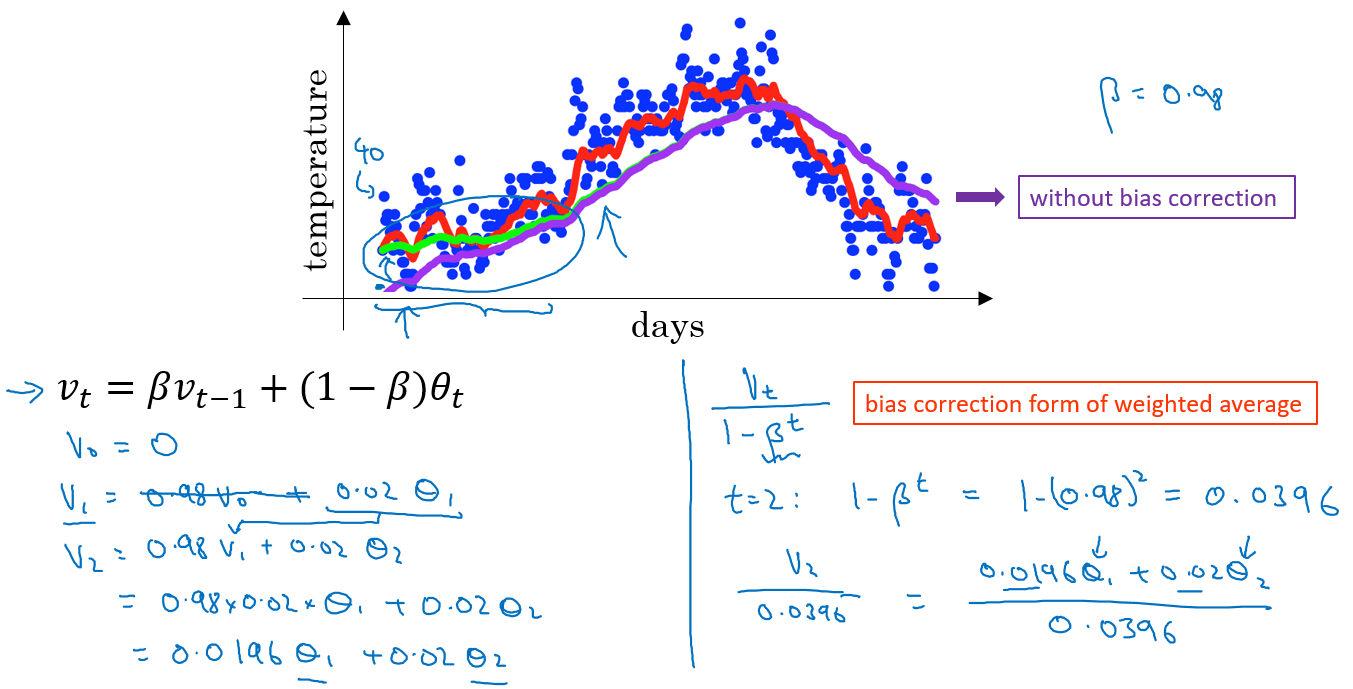 temperature
40
days
β = 0.98
without bias correction
→ v_t = βv_{t−1} + (1 − β)θ_t
V_0 = 0
V_1 = 0.98 V_0 + 0.02 θ_1
V_2 = 0.98 V_1 + 0.02 θ_2
= 0.98 x 0.02 x θ_1 + 0.02 θ_2
= 0.0196 θ_1 + 0.02 θ_2
V_t / 1 − β^t
bias correction form of weighted average
t=2: 1 − β^t = 1 − (0.98)^2 = 0.0396
V_2 / 0.0396 = 0.0196 θ_1 + 0.02 θ_2 / 0.0396